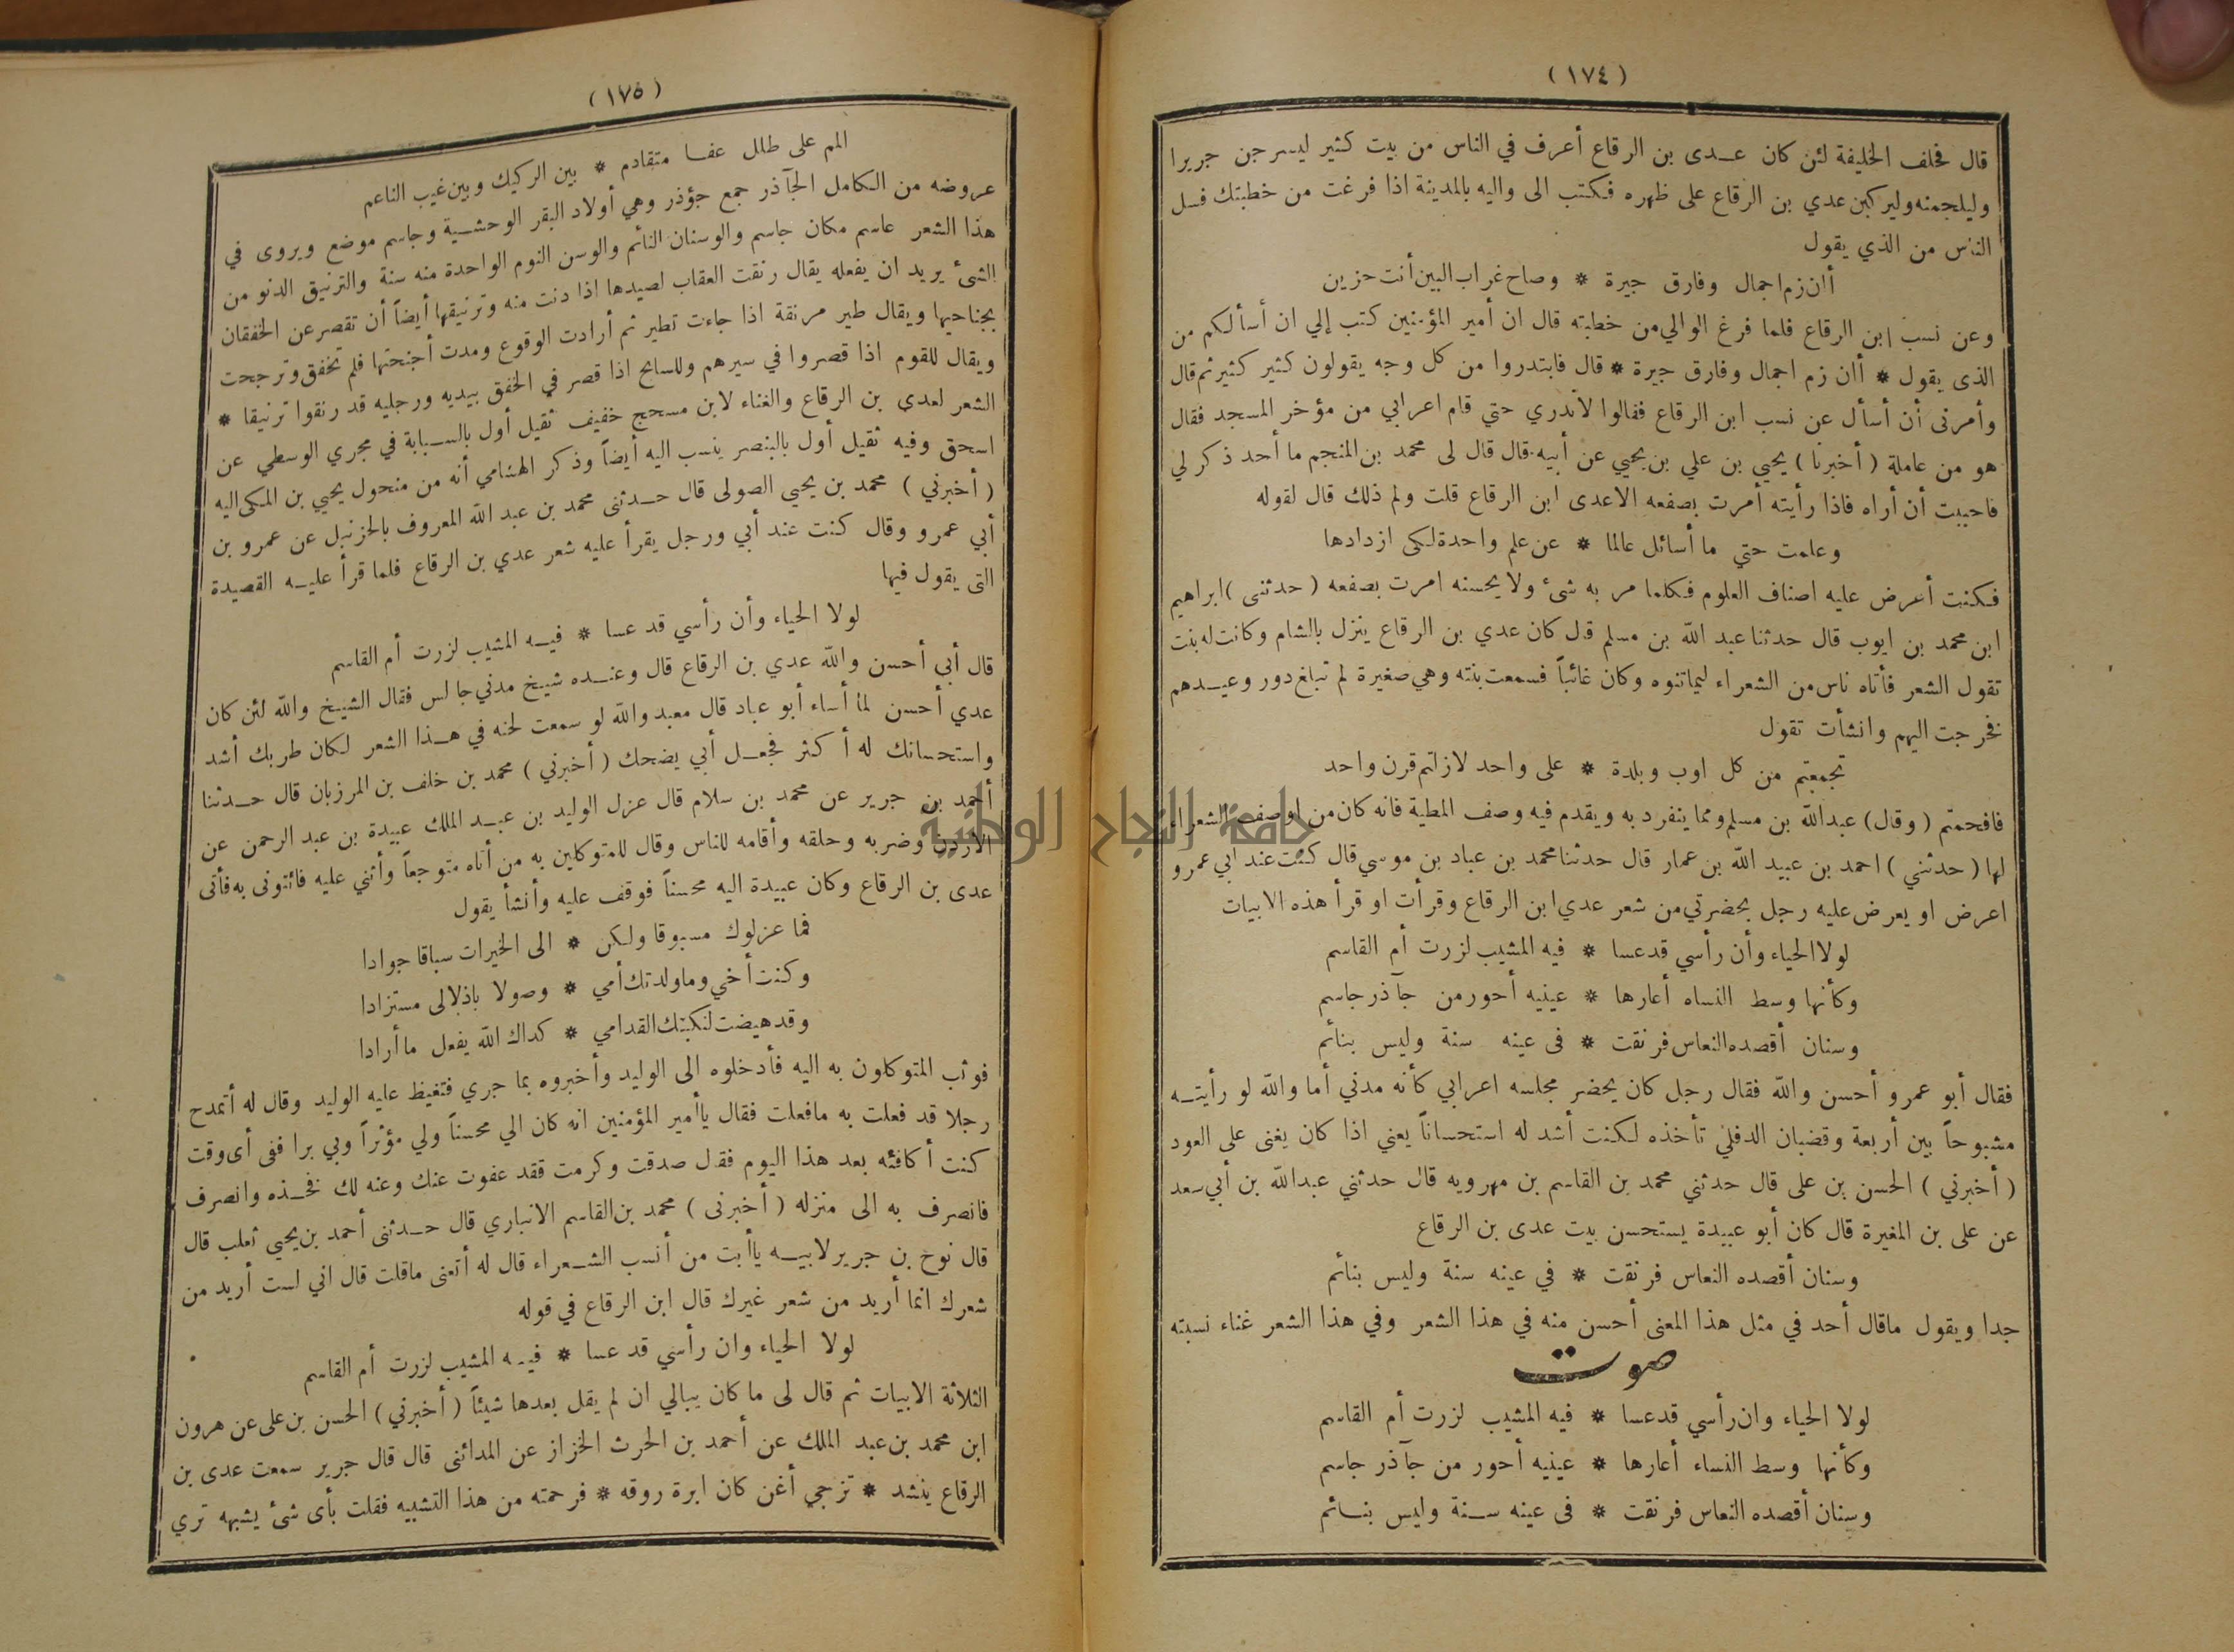 (١٧٤)
قال فحلف الخليفة لئن كان عـدى بن الرقاع أعرف في الناس من بيت كثير ليسرجن جريرا
وليلجمنه وليركبن عدي بن الرقاع على ظهره فكتب الى واليه بالمدينة اذا فرغت من خطبتك فسل
الناس من الذي يقول
أان زم اجمال وفارق جيرة * وصاح غراب البين أنت حزين
وعن نسب ابن الرقاع فلما فرغ الوالي من خطبته قال ان أمير المؤمنين كتب إلي ان أسألكم من
الذى يقول * أان زم اجمال وفارق جيرة * قال فابتدروا من كل وجه يقولون كثير كثير ثم قال
وأمرنى أن أسأل عن نسب ابن الرقاع فقالوا لاندري حتي قام اعرابي من مؤخر المسجد فقال
هو من عاملة (أخبرنا) يحيي بن علي بن يحيي عن أبيه قال قال لى محمد بن المنجم ما أحد ذكر لي
فاحببت أن أراه فاذا رأيته أمرت بصفعه الا عدى ابن الرقاع قلت ولم ذلك قال لقوله
وعلمت حتي ما أسائل عالما * عن علم واحدة لكى ازدادها
فكنت أعرض عليه اصناف العلوم فكلما مر به شئ ولا يحسنه امرت بصفعه (حدثنى) ابراهيم
ابن محمد بن ايوب قال حدثنا عبد الله بن مسلم قال كان عدي بن الرقاع ينزل بالشام وكانت له بنت
تقول الشعر فأتاه ناس من الشعراء ليماتنوه وكان غائباً فسمعت بنته وهي صغيرة لم تبلغ دور وعيـدهم
فخرجت اليهم وانشأت تقول
تجمعتم من كل اوب وبلدة * على واحد لازلتم قرن واحد
فافحمتم (وقال) عبدالله بن مسلم ومما ينفرد به ويقدم فيه وصف المطية فانه كان من اوصف الشعراء
لها (حدثني) احمد بن عبيد الله بن عمار قال حدثنا محمد بن عباد بن موسي قال كنت عند ابي عمرو
اعرض او يعرض عليه رجل بحضرتي من شعر عدي ابن الرقاع وقرأت او قرأ هذه الابيات
لولا الحياء وأن رأسي قد عسا * فيه المشيب لزرت أم القاسم
وكأنها وسط النساه أعارها * عينيه أحور من جآذر جاسم
وسنان أقصده النعاس فرنقت * فى عينه سنة وليس بنائم
فقال أبو عمرو أحسن والله فقال رجل كان يحضر مجلسه اعرابي كأنه مدني أما والله لو رأيتـه
مشبوحاً بين أربعة وقضبان الدفلي تأخذه لكنت أشد له استحساناً يعني اذا كان يغنى على العود
(أخبرني) الحسن بن على قال حدثني محمد بن القاسم بن مهرويه قال حدثني عبدالله بن أبي سعد
عن على بن المغيرة قال كان أبو عبيدة يستحسن بيت عدى بن الرقاع
وسنان أقصده النعاس فرنقت * في عينه سنة وليس بنائم
جدا ويقول ماقال أحد في مثل هذا المعنى أحسن منه في هذا الشعر وفي هذا الشعر غناء نسبته
صوت
لولا الحياء وان رأسي قد عسا * فيه المشيب لزرت أم القاسم
وكأنها وسط النساء أعارها * عينيه أحور من جآذر جاسم
وسنان أقصده النعاس فرنقت * فى عينه سـنة وليس بنـائم
(١٧٥)
المم على طلل عفـا متقادم * بين الركيك وبين غيب الناعم
عروضه من الكامل الجآذر جمع جؤذر وهي أولاد البقر الوحشـية وجاسم موضع ويروى في
هذا الشعر عاسم مكان جاسم والوسنان النائم والوسن النوم الواحدة منه سنة والترنيق الدنو من
الشئ يريد ان يفعله يقال رنقت العقاب لصيدها اذا دنت منه وترنيقها أيضاً أن تقصر عن الخفقان
بجناحيها ويقال طير مرنقة اذا جاءت تطير ثم أرادت الوقوع ومدت أجنحتها فلم تخفق وترجحت
ويقال للقوم اذا قصروا في سيرهم وللسابح اذا قصر في الخفق بيديه ورجليه قد رنقوا ترنيقا *
الشعر لعدى بن الرقاع والغناء لابن مسحج خفيف ثقيل أول بالسـبابة في مجري الوسطي عن
اسحق وفيه ثقيل أول بالبنصر ينسب اليه أيضاً وذكر الهشامي أنه من منحول يحيي بن المكى اليه
(أخبرني) محمد بن يحيي الصولى قال حـدثنى محمد بن عبد الله المعروف بالحزنبل عن عمرو بن
أبي عمرو وقال كنت عند أبي ورجل يقرأ عليه شعر عدي بن الرقاع فلما قرأ عليـه القصيدة
التى يقول فيها
لولا الحياء وأن رأسي قد عسا * فيـه المشيب لزرت أم القاسم
قال أبى أحسن والله عدي بن الرقاع قال وعنـده شيخ مدني جالس فقال الشيخ والله لئن كان
عدي أحسن لما أساء أبو عباد قال معبد والله لو سمعت لحنه في هـذا الشعر لكان طربك أشد
واستحسانك له أكثر فجعـل أبي يضحك (أخبرني) محمد بن خلف بن المرزبان قال حـدثنا
أحمد بن جرير عن محمد بن سلام قال عزل الوليد بن عبـد الملك عبيدة بن عبد الرحمن عن
الاردن وضربه وحلقه وأقامه للناس وقال للمتوكلين به من أتاه متوجعاً وأثني عليه فائتونى به فأتى
عدى بن الرقاع وكان عبيدة اليه محسناً فوقف عليه وأنشأ يقول
فما عزلوك مسبوقا ولكن * الى الخيرات سباقا جوادا
وكنت أخي وما ولدتك أمي * وصولا باذلا لى مستزادا
وقد هيضت لنكبتك القدامي * كذاك الله يفعل ما أرادا
فوثب المتوكلون به اليه فأدخلوه الى الوليد وأخبروه بما جري فتغيظ عليه الوليد وقال له أتمدح
رجلا قد فعلت به مافعلت فقال ياأمير المؤمنين انه كان الي محسناً ولي مؤثراً وبي برا ففى أى وقت
كنت أكافئه بعد هذا اليوم فقال صدقت وكرمت فقد عفوت عنك وعنه لك فخـذه وانصرف
فانصرف به الى منزله (أخبرنى) محمد بن القاسم الانباري قال حـدثنى أحمد بن يحيى ثعلب قال
قال نوح بن جرير لابيـه ياأبت من أنسب الشـعراء قال له أتعنى ماقلت قال اني لست أريد من
شعرك انما أريد من شعر غيرك قال ابن الرقاع في قوله
لولا الحياء وان رأسي قد عسا * فيـه المشيب لزرت أم القاسم
الثلاثة الابيات ثم قال لى ما كان يبالي ان لم يقل بعدها شيئاً (أخبرني) الحسن بن على عن هرون
ابن محمد بن عبد الملك عن أحمد بن الحرث الخزاز عن المدائنى قال قال جرير سمعت عدى بن
الرقاع ينشد * تزجي أغن كان ابرة روقه * فرحمته من هذا التشبيه فقلت بأى شئ يشبهه تري
جامعة النجاح الوطنية